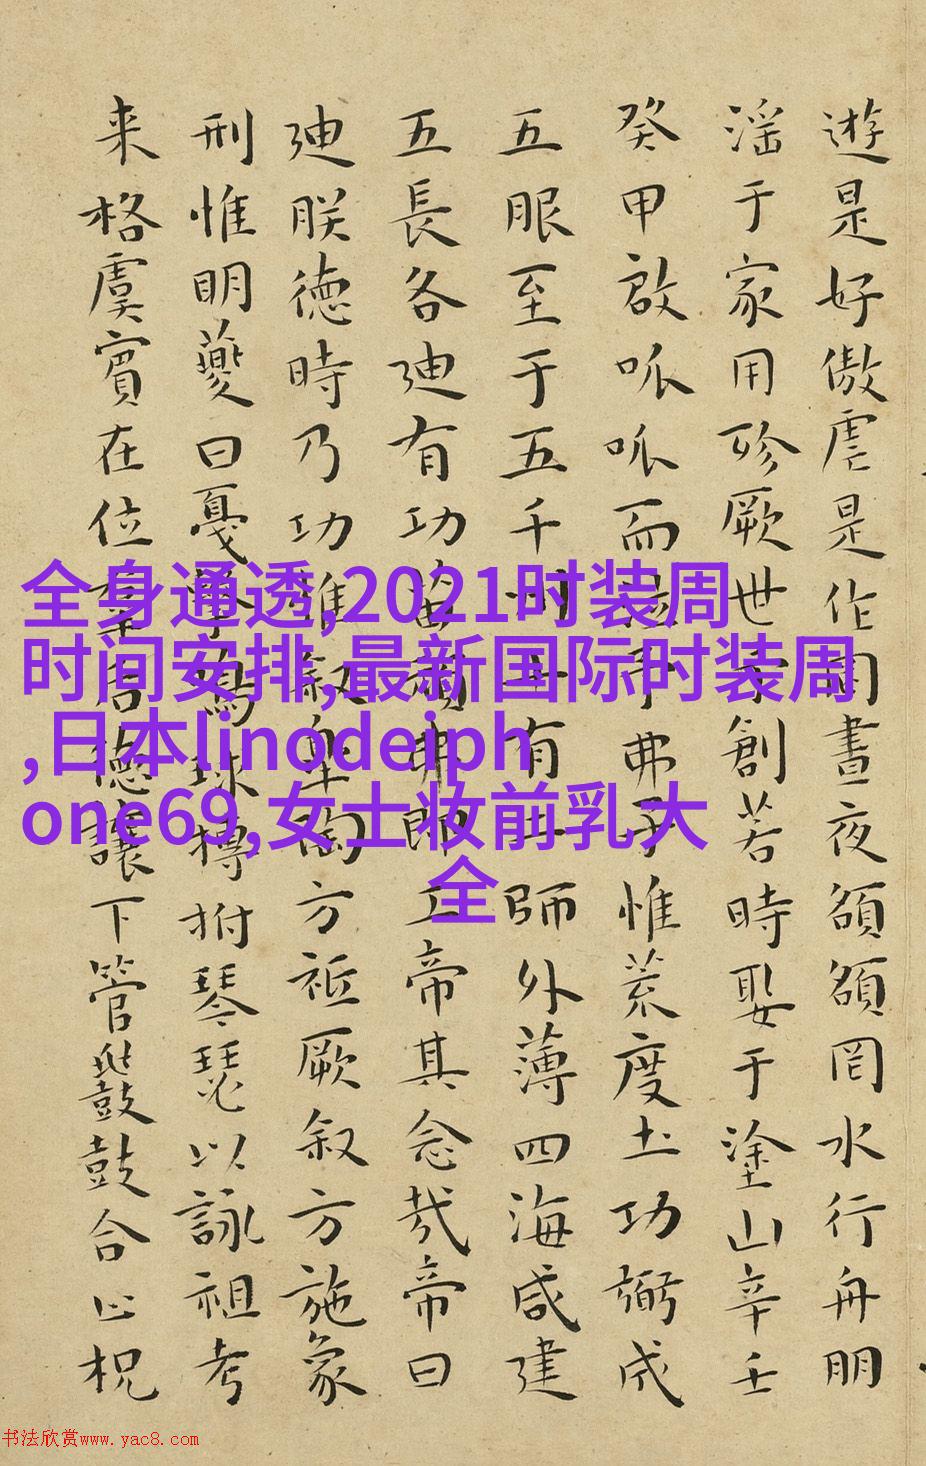 遊是好傲虐是作罔晝夜頟頟罔水行舟朋
淫于家用殄厥世予創若時娶于塗山辛壬
癸甲啟呱呱而弗子惟荒度土功弼成
五服至于五千州十有二師外薄四海咸建
五長各迪有功苗頑弗即工帝其念哉帝曰
迪朕德時乃功惟叙皋陶方祗厥叙方施象
刑惟明夔曰戛擊鳴球搏拊琴瑟以詠祖考
来格虞賓在位羣后德讓下管鼗鼓合止柷
全身通透,2021时装周
时间安排,最新国际时装周
,日本linodeiph
one69,女士妆前乳大
全
书法欣赏www.yac8.com